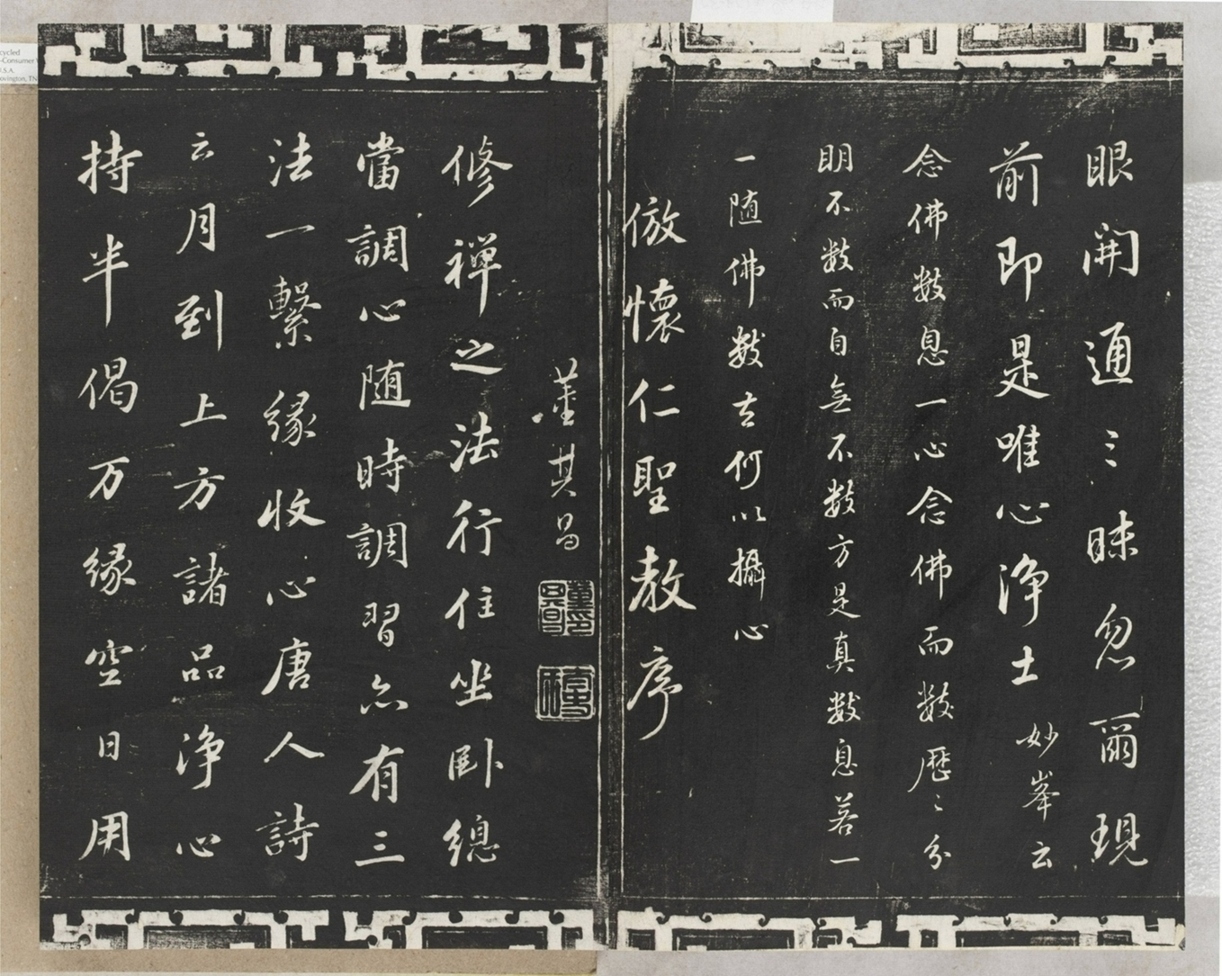 眼開通〻昧忽爾現
前即是唯心浄土妙峯云
念佛數息一心念佛而數歷〻分
明不數而自無不數方是真數息若一
一随佛數去何以攝心
倣懷仁聖教序
董其昌
修禅之法行住坐卧總
當調心随時調習亦有三
法一繫緣收心唐人詩
云月到上方諸品浄心
持半偈万緣空日用
cycled
-Consumer
U.S.A.
ovington, TN